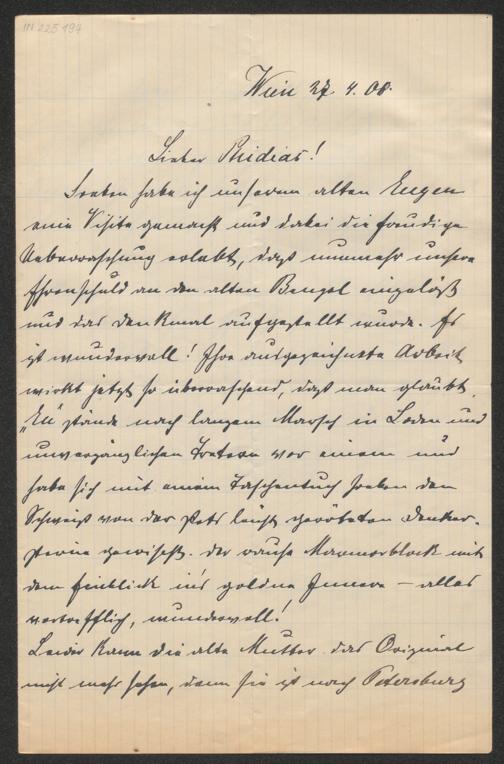 IN 225 194
Wien 27. 4. 08.
Lieber Phidias!
Soeben habe ich unserem alten Eugen
eine Visite gemacht und dabei die freudige
Ueberraschung erlebt, daß nunmehr unsere
Ehrenschuld an den alten Bengel eingelöst
und das Denkmal aufgestellt wurde. Es
ist wundervoll! Ihre ausgezeichnete Arbeit
wirkt jetzt so überraschend, daß man glaubt,
stände nach langem Marsch in Loden und
unvergänglichen Tretern vor einem und
habe sich mit einem Taschentuch soeben den
Schweiß von der stets leicht geröteten Denker-
stirne gewischt. Der rauhe Marmorblock mit
dem Einblick in's goldne Innere — alles
vortrefflich, wundervoll!
Leider kann die alte Mutter das Original
nicht mehr sehen, denn sie ist nach Petersburg